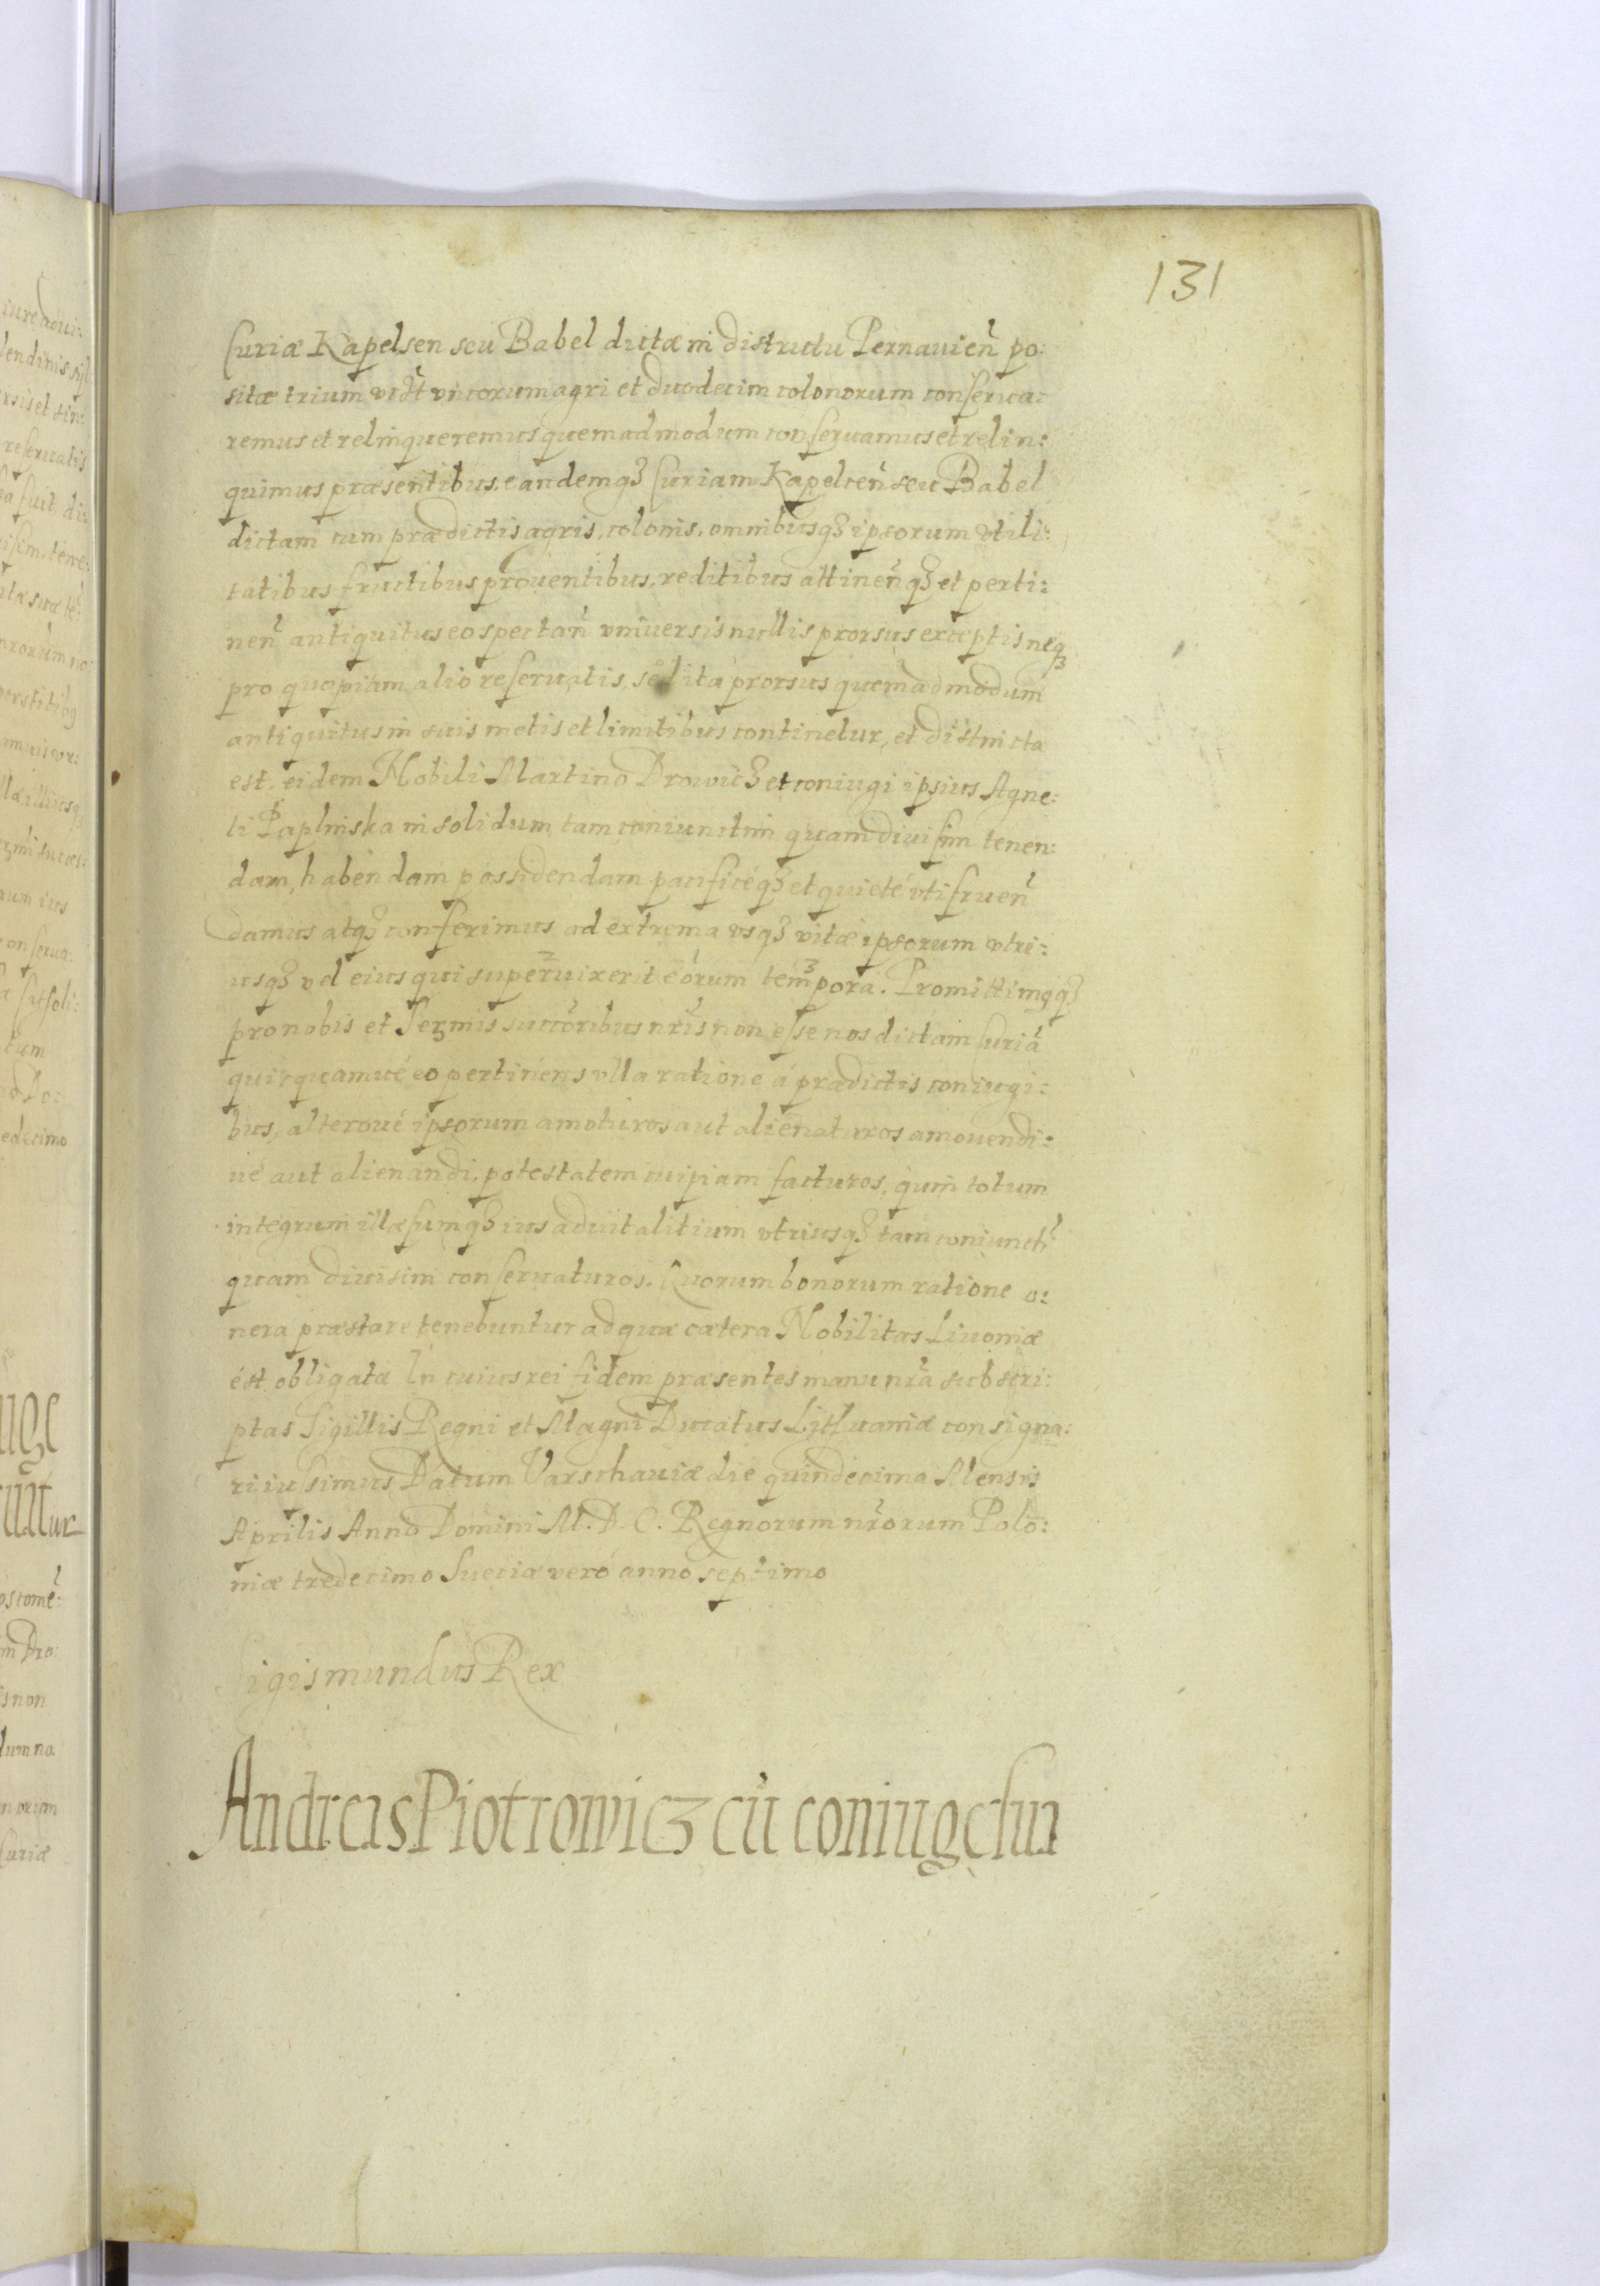 131
Curiæ Kapelsen seu Babel dictæ in districtu Pernauien̄ po:
sitæ trium vid̄t vncorum agri et duodecim colonorum conserua:
remus et relinqueremus quemadmodum conseruamus et relin:
quimus præsentibus, eandemqȝ Curiam Kapelcen̄ seu Babel
dictam cum prædictis agris, colonis, omnibusqȝ ipsorum vtili:
tatibus fructibus prouentibus, reditibus attinen̄qȝ et perti:
nen̄ antiquitus eo spectan̄ vniuersis nullis prorsus exceptis neqȝ
pro quopiam alio reseruatis, sed ita prorsus quemadmodum
antiquitus in suis metis et limitibus continetur, et distincta
est, eidem Nobili Martino Drowicȝ et coniugi ipsius Agne:
ti Paplinska in solidum, tam coniunctim quam diuisim tenen:
dam, habendam possidendam pacificéqȝ et quieté vtifruen̄
damus atqȝ conferimus ad extrema vsqȝ vitæ ipsorum vtri:
usqȝ vel eius qui superuixerit eorum tempora. Promittimqqȝ
pro nobis et Serz̄mis succōribus nr̄is non esse nos dictam Curiā
quicquamué eo pertinens vlla ratione á prædictis coniugi:
bus, alteroué ipsorum amoturos aut alienaturos amouendi:
ué aut alienandi, potestatem cuipiam facturos, quin totum
integrum illæsumqȝ ius aduitalitium vtriusqȝ tam coniunctī
quam diuisim conseruaturos. Quorum bonorum ratione o:
nera præstare tenebuntur ad quæ cætera Nobilitas Liuoniæ
est obligata In cuius rei fidem præsentes manu nr̄a subscri:
ptas Sigillis Regni et Magni Ducatus Lithuaniæ consigna:
ri iussimus Datum Varschauiæ die quindecima Mensis
Aprilis Anno Domini M. D. C. Regnorum nr̄orum Polo:
niæ tredecimo Sueciæ veró anno septimo
Sigismundus Rex
Andreas Piotrowicȝ cū coniuge sua